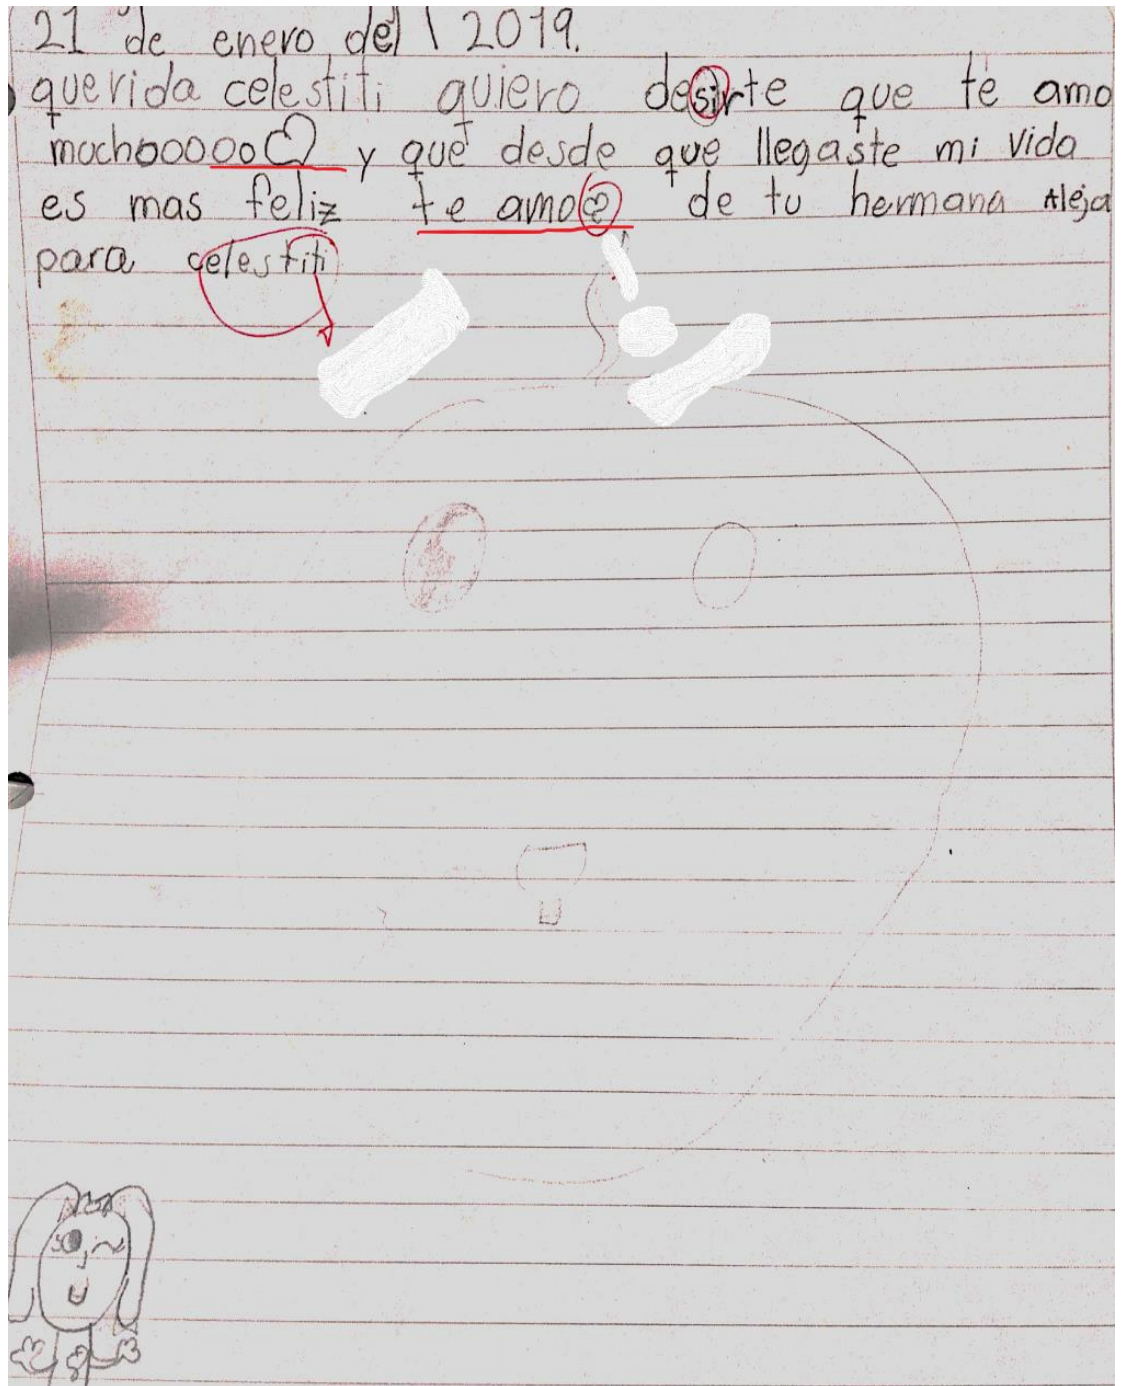 21 de enero del 2019.
querida celestiti quiero desirte que te amo
muchooooo y que desde que llegaste mi vida
es mas feliz te amo de tu hermana Aleja
para celestiti